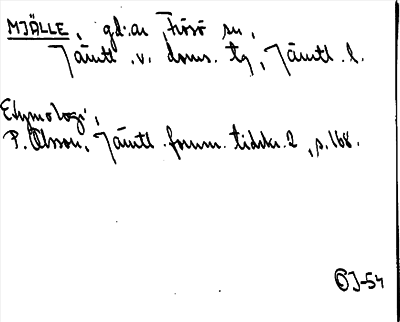 MJÄLLE, gd.ar Frösö sn,
Jämtl. v. doms. tg, Jämtl. l.
Etymologi,
P. Olsson, Jämtl. fornm. tidskr. 2, s. 168.
OJ-54